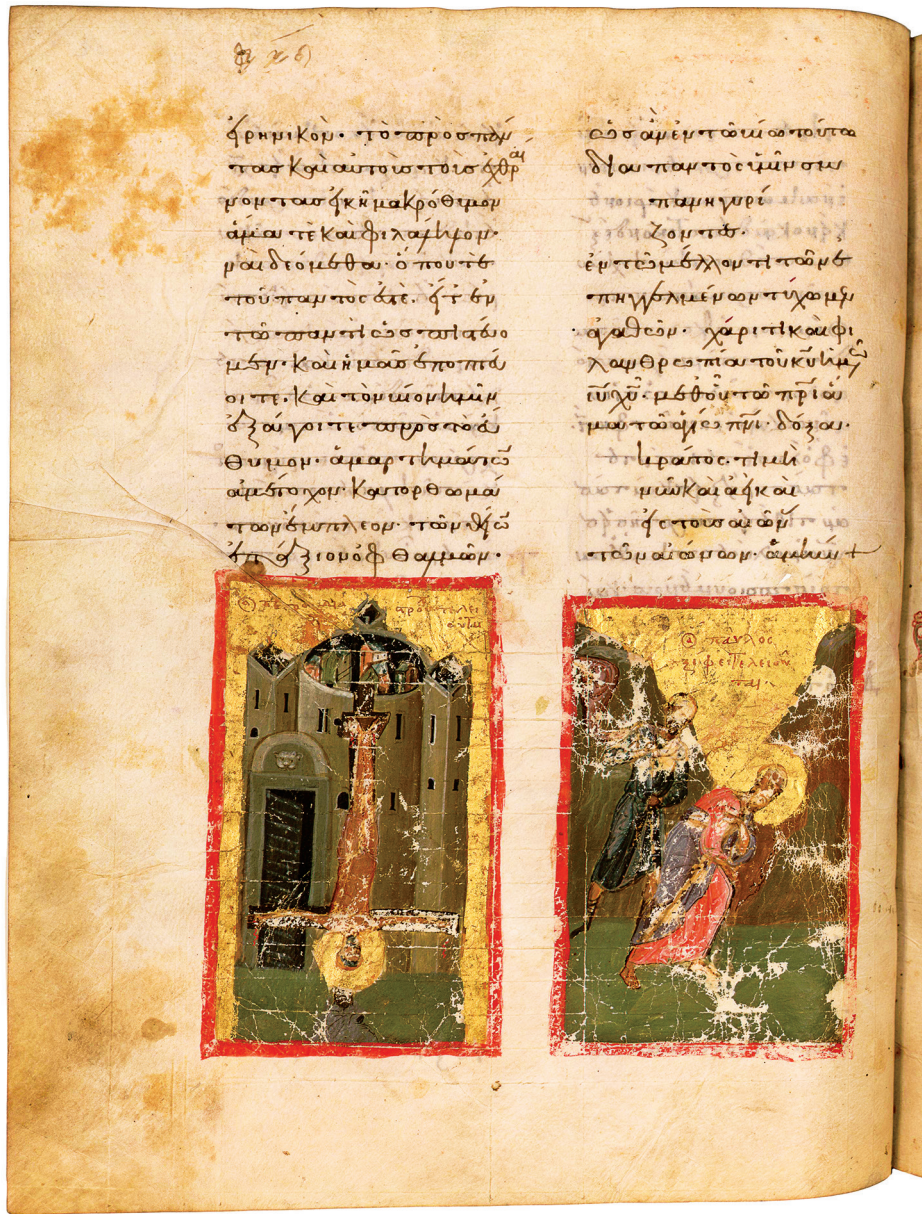 εἰρηνικὸν· τὸ πρὸς πάν
τας καὶ αὐτοὺς τοὺς ἐχθραί
νοντας ἐκεῖ μακρόθυμον
ἅμα τε καὶ φιλάνθρωπον·
ναὶ δεόμεθα·
τοῦ παντὸς
τῶ παντὶ ὡς πιστεύο
μεν· καὶ ἡμᾶς ἐποπτεύ
οιτε· καὶ τὸν βίον ἡμῶν
ἐξάγοιτε πρὸς τὸ εὔ
θυμον· ἁμαρτημάτων
ἀμέτοχον· κατορθωμά
των ἔμπλεον· τῶν θείων
ἐπάξιον ὀφθαλμῶν·
ὡς ἂν ἐν τῶ βίω τούτω
διαπαντὸς ὑμῖν συμ
πανηγυρί
ζοντες·
ἐν τῶ μέλλοντι τῶν ἐ
πηγγελμένων τύχωμεν
ἀγαθῶν· χάριτι καὶ φι
λανθρωπία τοῦ κυ ἡμῶν
ιυ χυ· μεθ οὗ τῶ πρὶ ἅ
μα τῶ ἁγίω πνι· δόξα·
κράτος· τιμὴ
νῦν καὶ ἀεὶ καὶ
εἰς τοὺς αἰῶν
τῶν αἰώνων· ἀμήν +
ὁ παῦλος
ξίφει τελειοῦ
ται